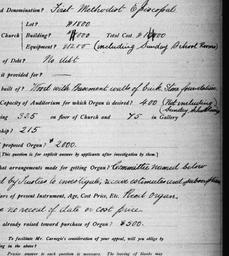 d Denomination? First Methodist Episcopal
Lot? $1800
Church Building? Total Cost
Equipment? (including Sunday School Rooms)
of Debt? No debt
it provided for? —
built of? Wood with basement walls of brick, stone foundation.
Capacity of Auditorium for which Organ is desired? 400 (Not including Sunday School Room)
ing 325 on floor of Church and 75 in Gallery
ship? 215
proposed Organ? $2000.
[This question is for explicit answer by applicants after investigation by them.]
hat arrangements made for getting Organ? Committee named below
d by Trustees to investigate, receive estimates and
ars of present Instrument, Age, Cost Price, Etc. Reed organ.
e no record of date or cost price.
already raised toward purchase of Organ? $500.
To facilitate Mr. Carnegie's consideration of your appeal, will you oblige by
ing in the above?
Precise answer to each question is necessary. The leaving of blanks may